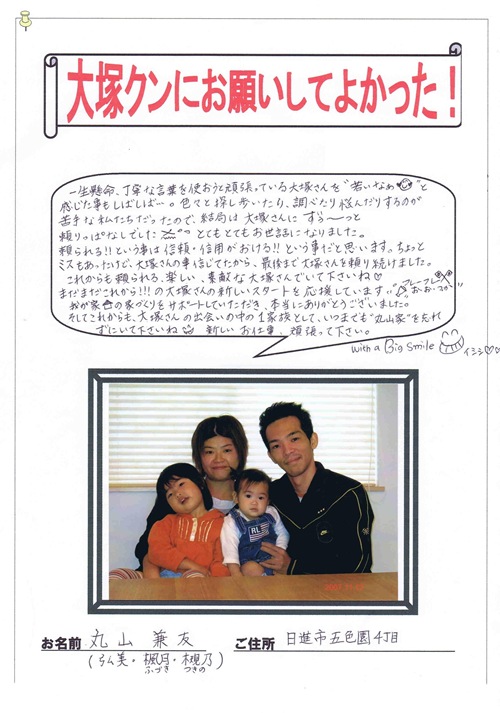 大塚クンにお願いしてよかった！
一生懸命、丁寧な言葉を使おうと頑張っている大塚さんを"若いなぁ"と
感じた事もしばしば…。色々と探し歩いたり、調べたり悩んだりするのが
苦手な私たちだったので、結局は大塚さんにずら〜っと
頼りっぱなしでした とてもとてもお世話になりました。
頼られる!!という事は信頼・信用がおける!!という事だと思います。ちょっと
ミスもあったけど、大塚さんの事信じてたから、最後まで大塚さんを頼り続けました。
これからも頼られる、楽しい、素敵な大塚さんでいて下さいね♡
まだまだこれから!!!の大塚さんの新しいスタートを応援しています
フレーフレー
おおつか
我が家の家づくりをサポートしていただき、本当にありがとうございました。
そしてこれからも、大塚さんの出会いの中の1家族として、いつまでも"丸山家"を忘れ
ずにいて下さいね 新しいお仕事、頑張って下さい。
with a Big Smile イシシ♡♡
RL
お名前 丸山 兼友 ご住所 日進市五色園4丁目
(弘美・楓月・槻乃)
ふづき つきの